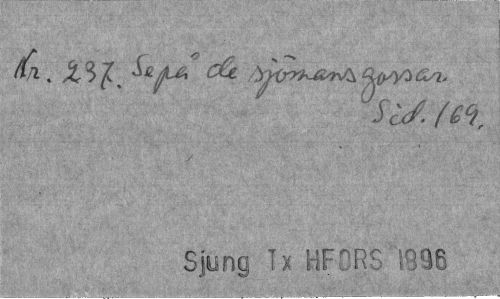 Nr. 237. Se på de sjömansgossar
Sid. 169.
Sjung Tx HFORS 1896